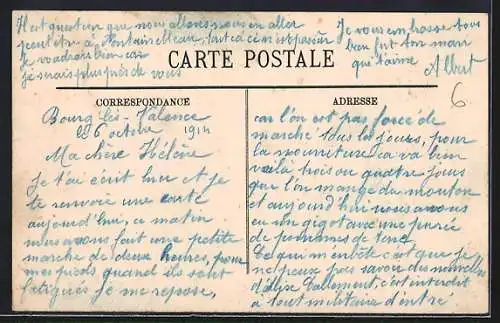 Il est question que nous allons nous en aller
peut être à Fontainebleau, tout cà ce n'est pas sûr
Je voudrais bien car
je serais plus près de vous
Je vous embrasse tous
bien fort ton mari
qui t'aime
Albert
CARTE POSTALE
6
CORRESPONDANCE
ADRESSE
Bourg-lès-Valence
le 6 octobre 1914
Ma chère Hélène
Je t'ai écrit hier et je
te renvoie une carte
aujourd'hui, ce matin
nous avons fait une petite
marche de deux heures, pour
mes pieds quand ils sont
fatigués je me repose,
car l'on est pas forcé de
marché tous les jours, pour
la nourriture ca va bien
voilà trois ou quatre jours
que l'on mange du mouton
et aujourd'hui nous avons
eu un gigot avec une purée
de pommes de terre
Ce qui m'embête c'est que je
ne peux pas savoir des nouvelles
d'Alixe Lallement, c'est interdit
à tout militaire d'entré